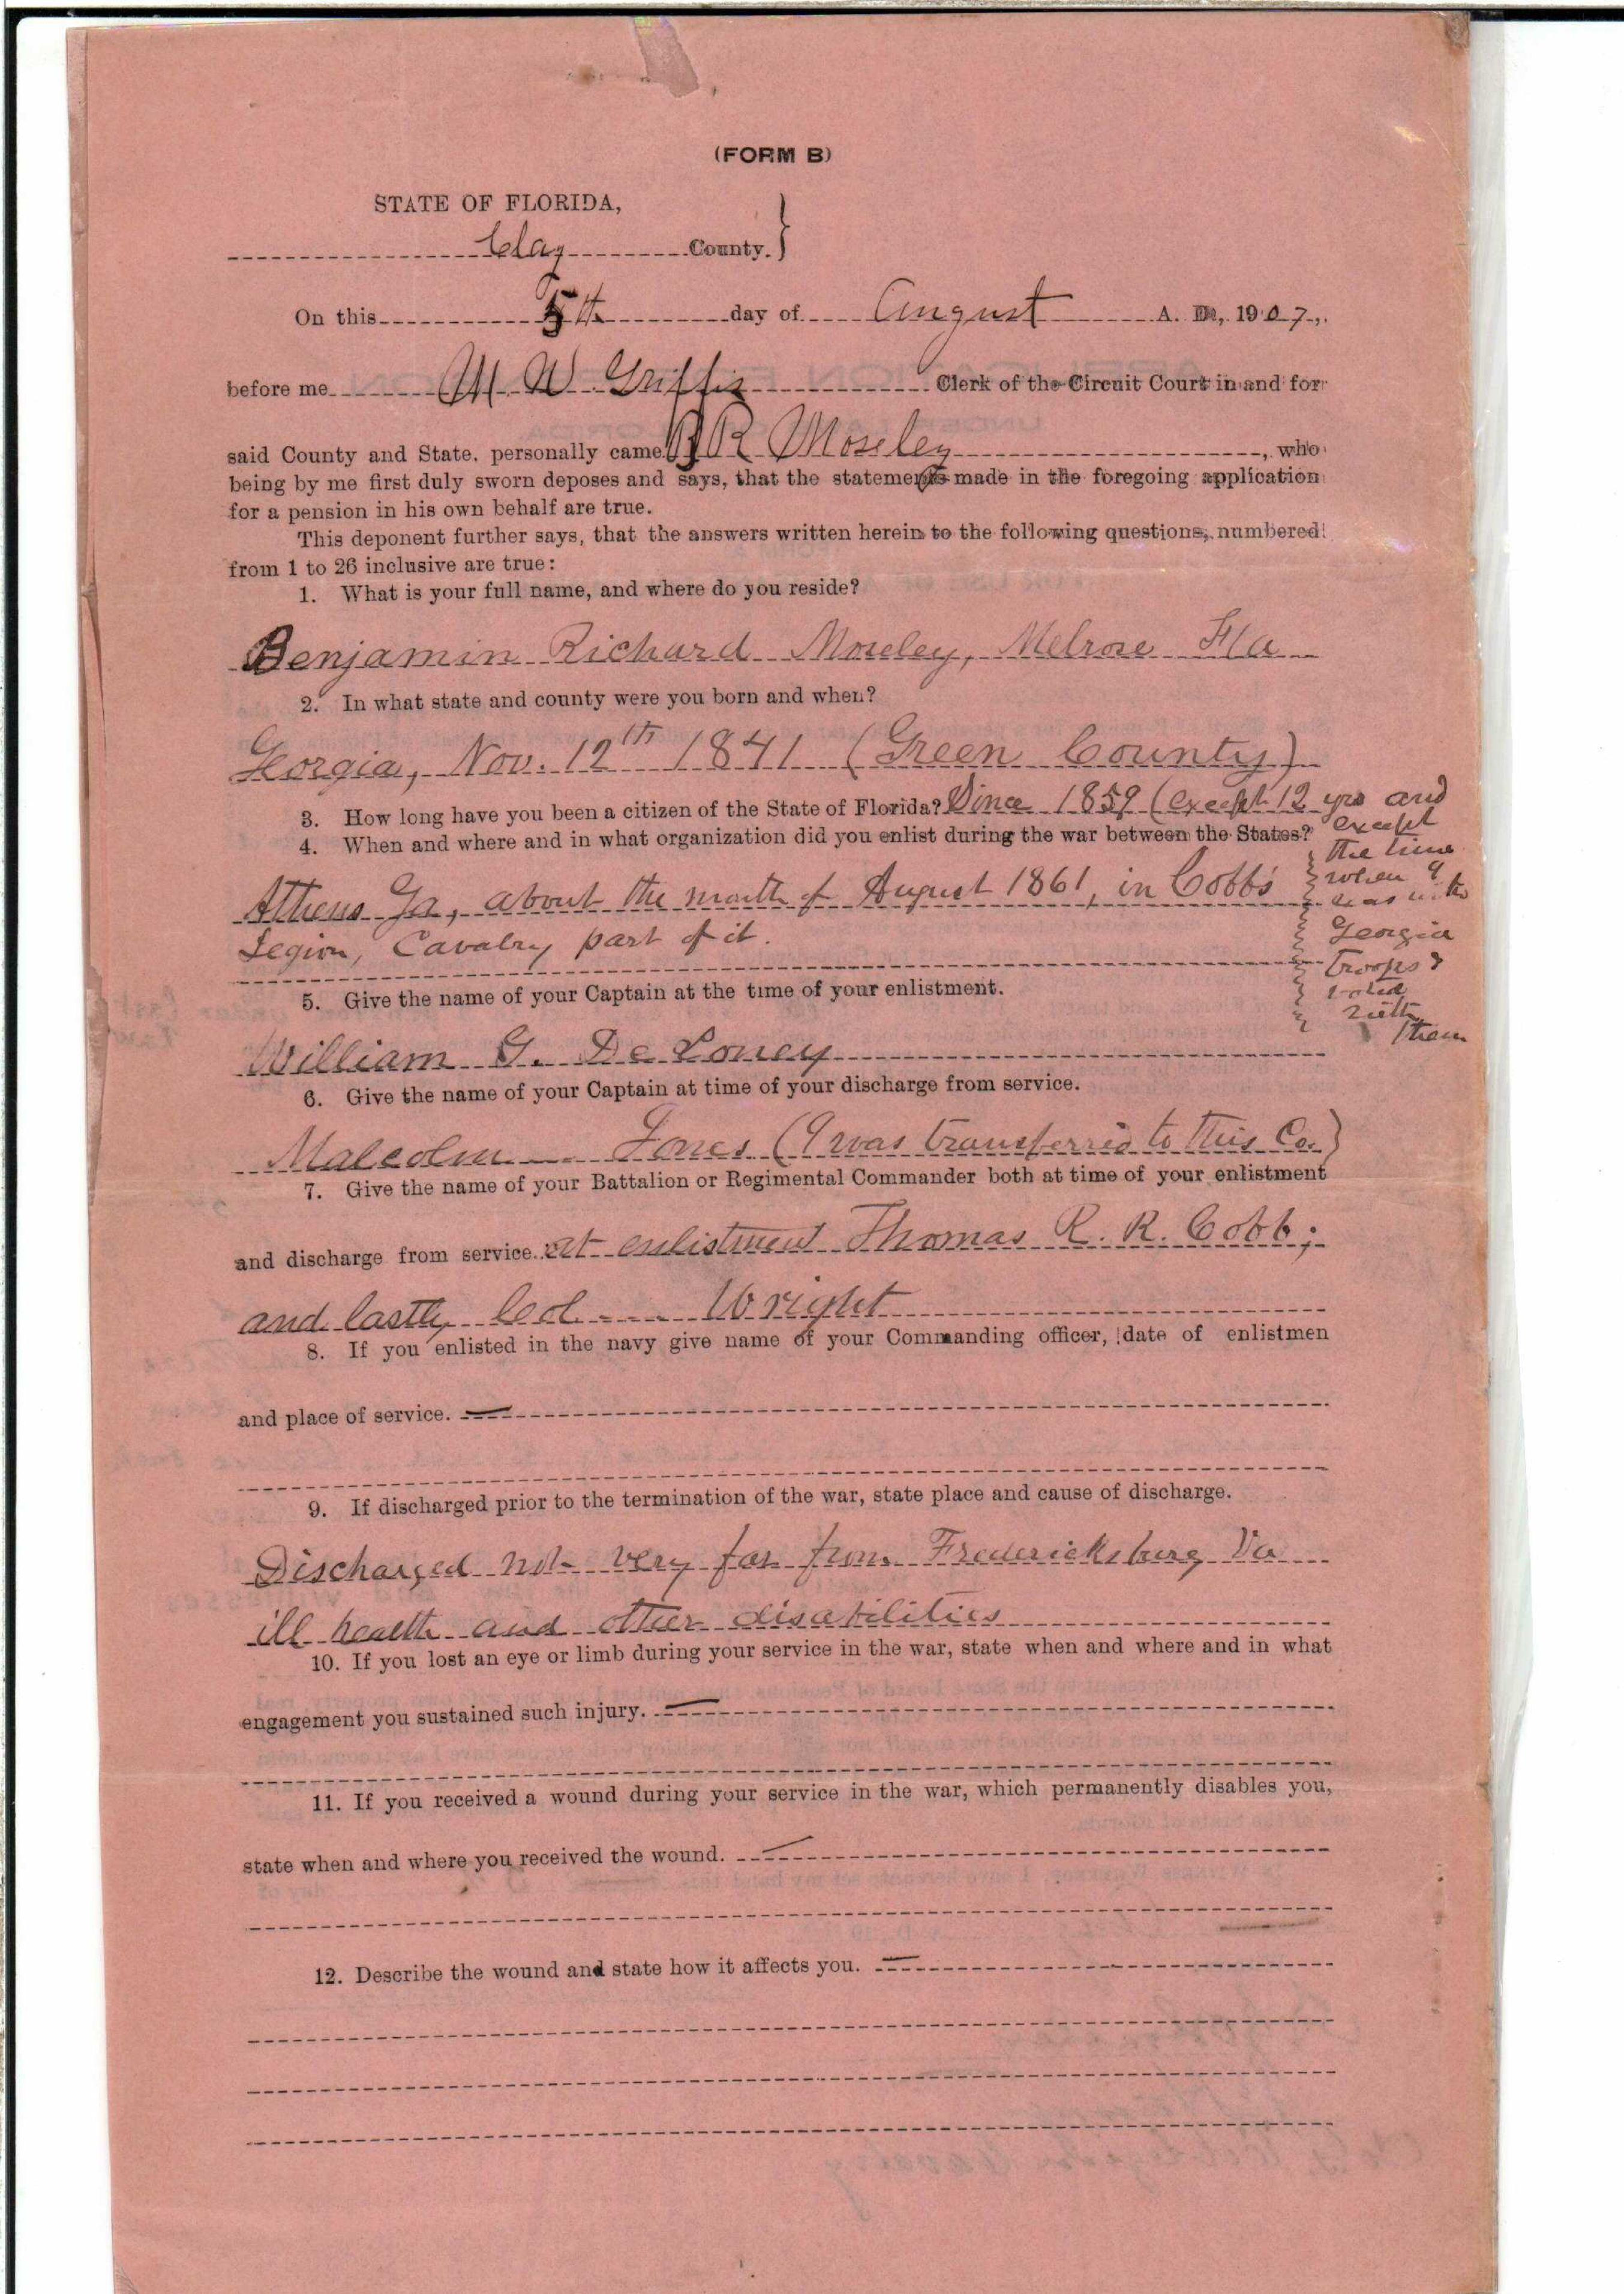 (FORM B)
STATE OF FLORIDA,
Clay County.
On this 5th day of August A. D., 1907,
before me M. W. Griffis Clerk of the Circuit Court in and for
said County and State, personally came B R Moseley, who
being by me first duly sworn deposes and says, that the statements made in the foregoing application
for a pension in his own behalf are true.
This deponent further says, that the answers written herein to the following questions, numbered
from 1 to 26 inclusive are true:
1. What is your full name, and where do you reside?
Benjamin Richard Moseley, Melrose Fla
2. In what state and county were you born and when?
Georgia, Nov. 12th 1841 (Green County)
3. How long have you been a citizen of the State of Florida? Since 1859 (except 12 yrs and
except
the time
when I
was with
Georgia
troops &
voted
with
them
4. When and where and in what organization did you enlist during the war between the States?
Athens Ga, about the month of August 1861, in Cobb's
Legion, Cavalry part of it.
5. Give the name of your Captain at the time of your enlistment.
William G. De Loney
6. Give the name of your Captain at time of your discharge from service.
Malcolm Jones (I was transferred to this Co.)
7. Give the name of your Battalion or Regimental Commander both at time of your enlistment
and discharge from service. at enlistment Thomas R. R. Cobb;
and lastly Col. Wright
8. If you enlisted in the navy give name of your Commanding officer, date of enlistmen
and place of service. —
9. If discharged prior to the termination of the war, state place and cause of discharge.
Discharged not very far from Fredericksburg Va
ill health and other disabilities
10. If you lost an eye or limb during your service in the war, state when and where and in what
engagement you sustained such injury. —
11. If you received a wound during your service in the war, which permanently disables you,
state when and where you received the wound. —
12. Describe the wound and state how it affects you. —